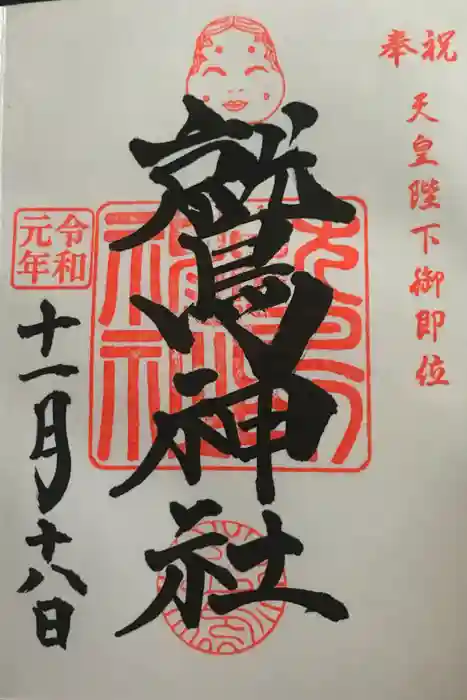 奉祝
天皇陛下御即位
鷲神社
令和
元年
十一月十八日